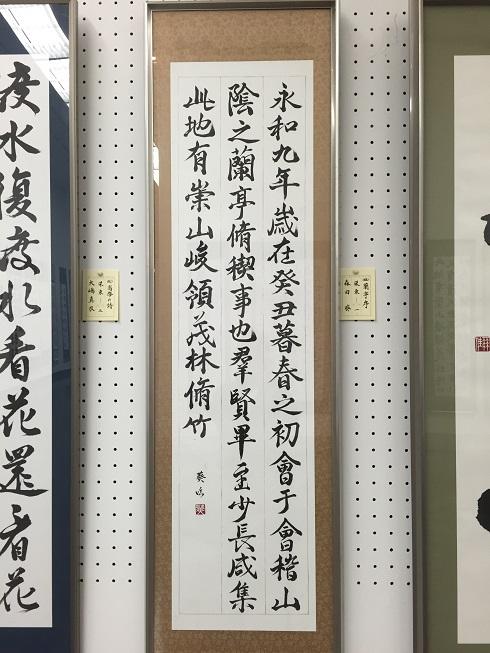 永和九年歳在癸丑暮春之初會于會稽山
陰之蘭亭脩稧事也羣賢畢至少長咸集
此地有崇山峻領茂林脩竹
蘭亭序
渡水復渡水看花還看花